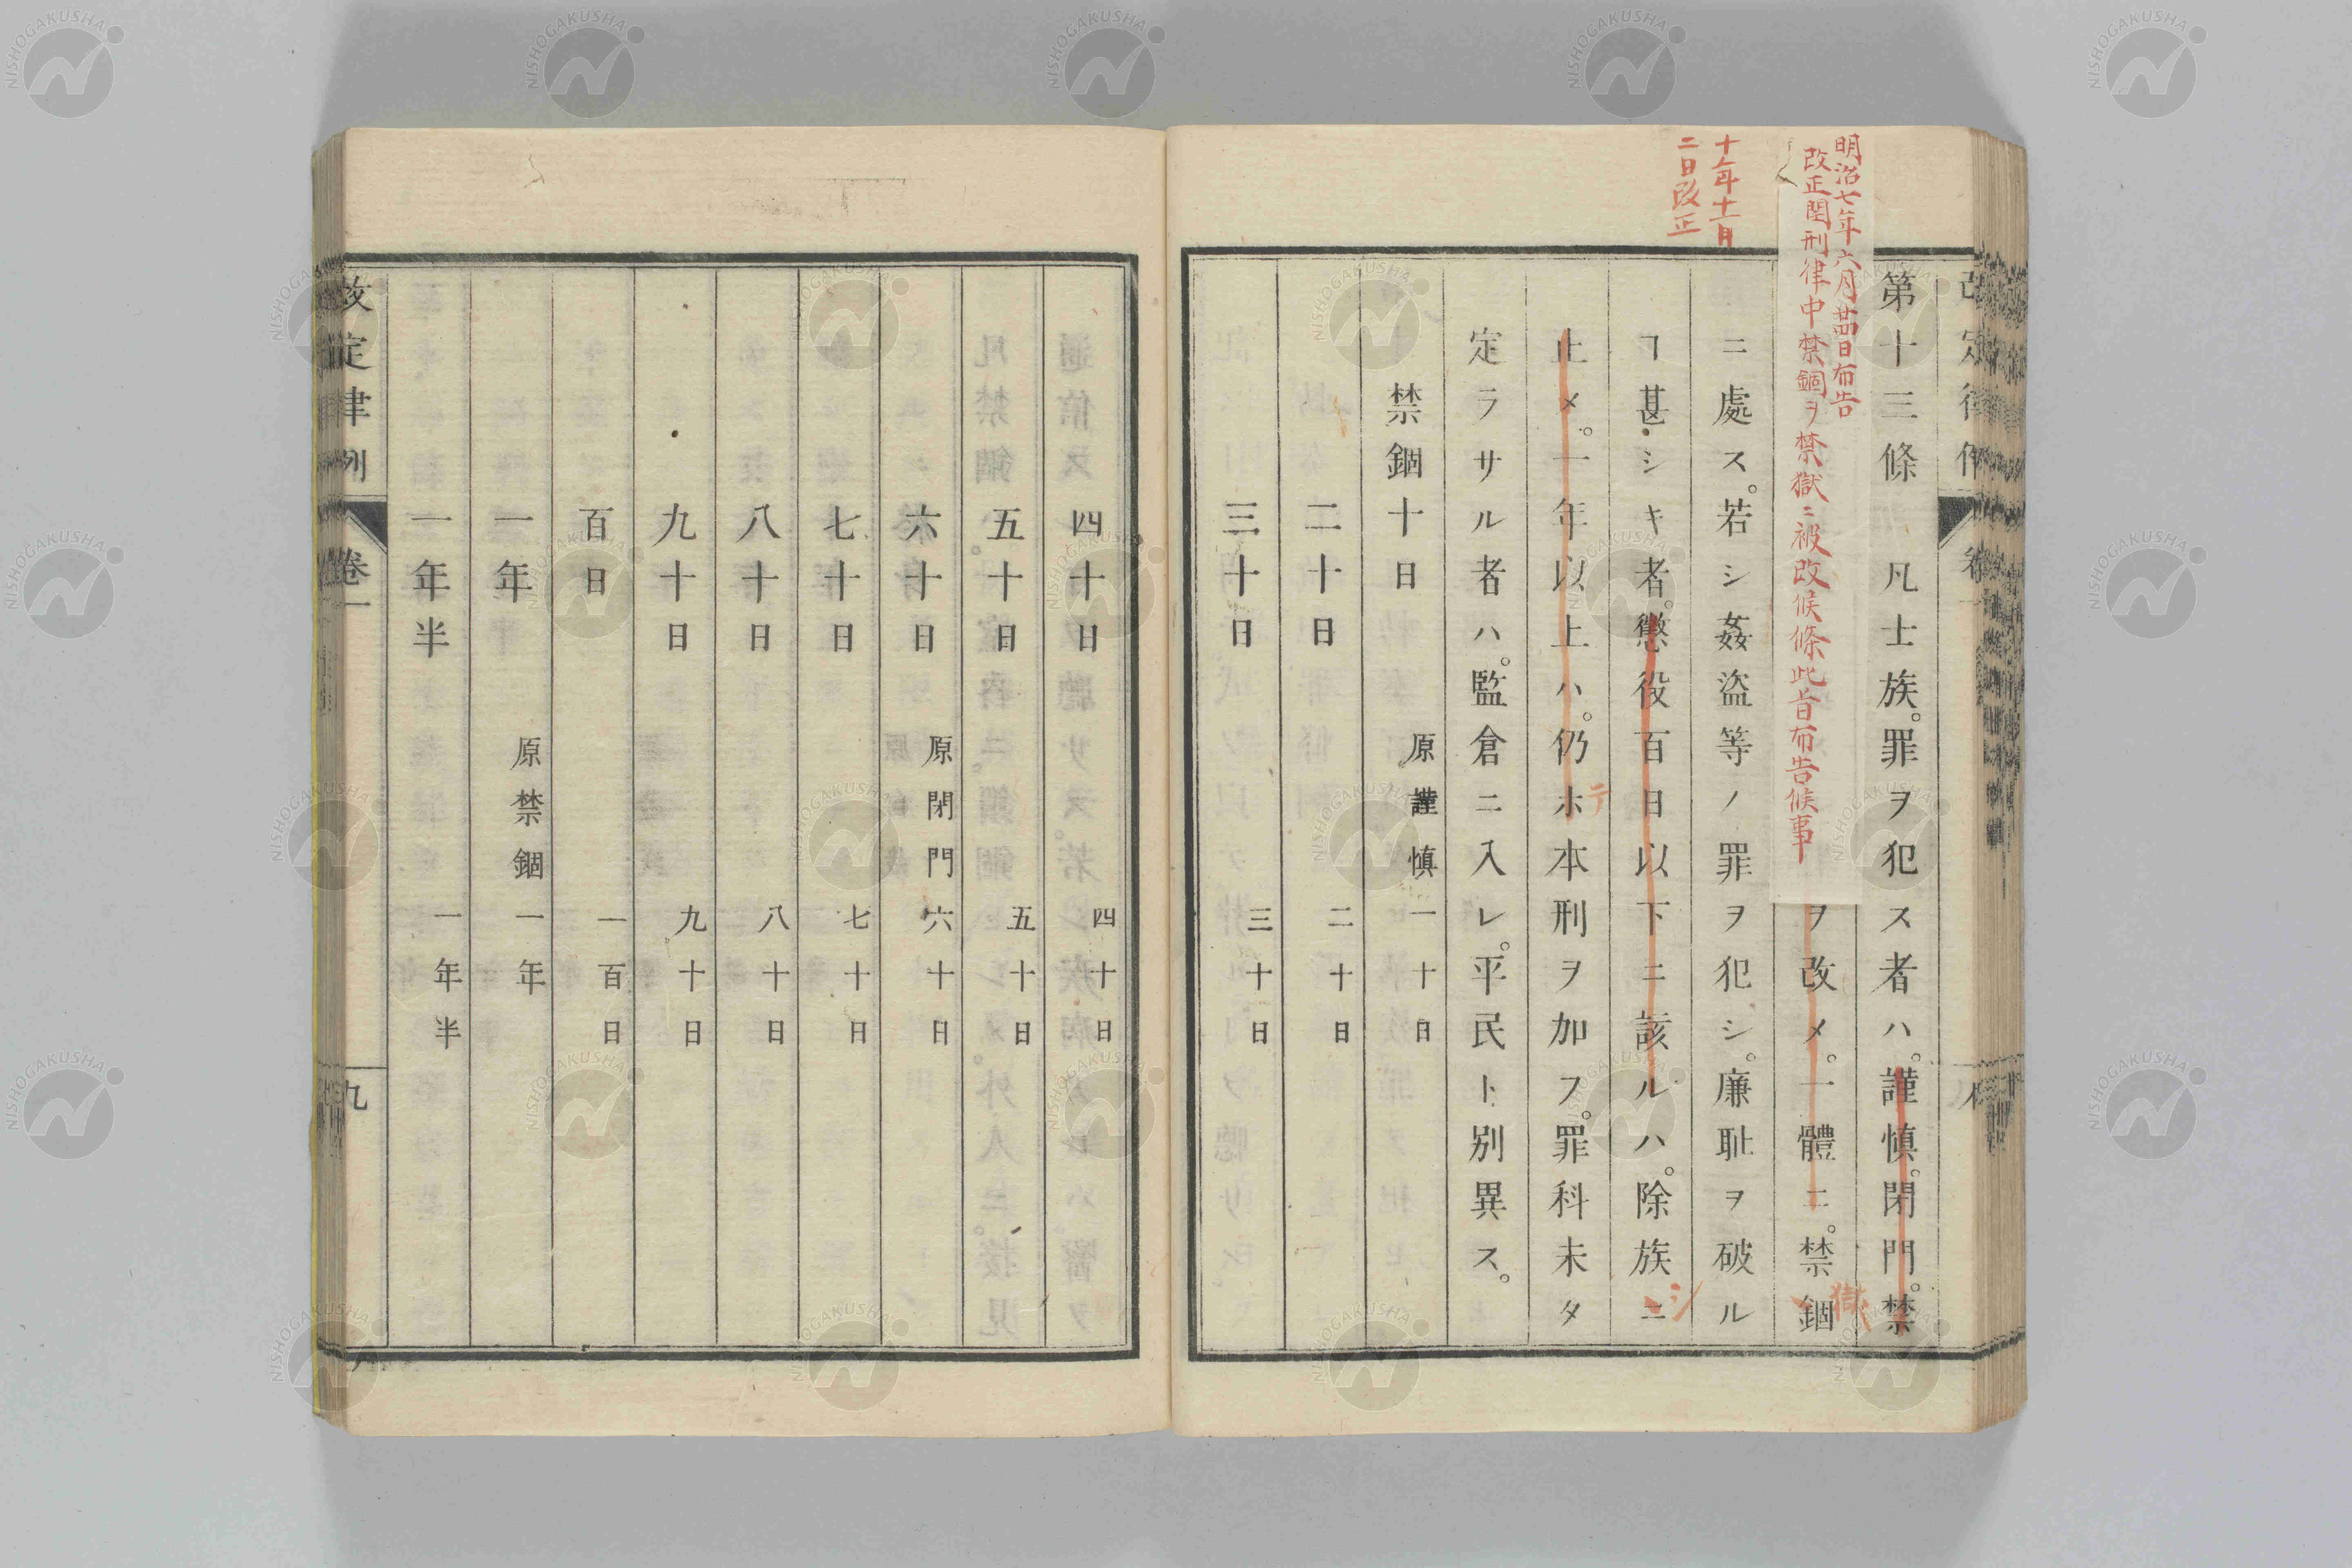 十年十一月
二日改正
明治七年六月廿四日布告
改正閏刑律中禁錮ヲ禁獄ニ被改候條此旨布告候事
第十三條 凡士族。罪ヲ犯ス者ハ。謹慎。閉門。禁
ヲ改メ。一體ニ。禁錮
獄
ニ處ス。若シ姦盜等ノ罪ヲ犯シ。廉耻ヲ破ル
ヿ甚シキ者。懲役百日以下ニ該ルハ。除族ニ
シ
止メ。一年以上ハ。仍ホ本刑ヲ加フ。罪科未タ
テ
定ラサル者ハ。監倉ニ入レ。平民ト別異ス。
禁錮十日 原謹慎一十日
二十日 二十日
三十日 三十日
四十日 四十日
五十日 五十日
六十日 原閉門六十日
七十日 七十日
八十日 八十日
九十日 九十日
百日 一百日
一年 原禁錮一年
一年半 一年半
改定律例 卷一 九
NISHOGAKUSHA